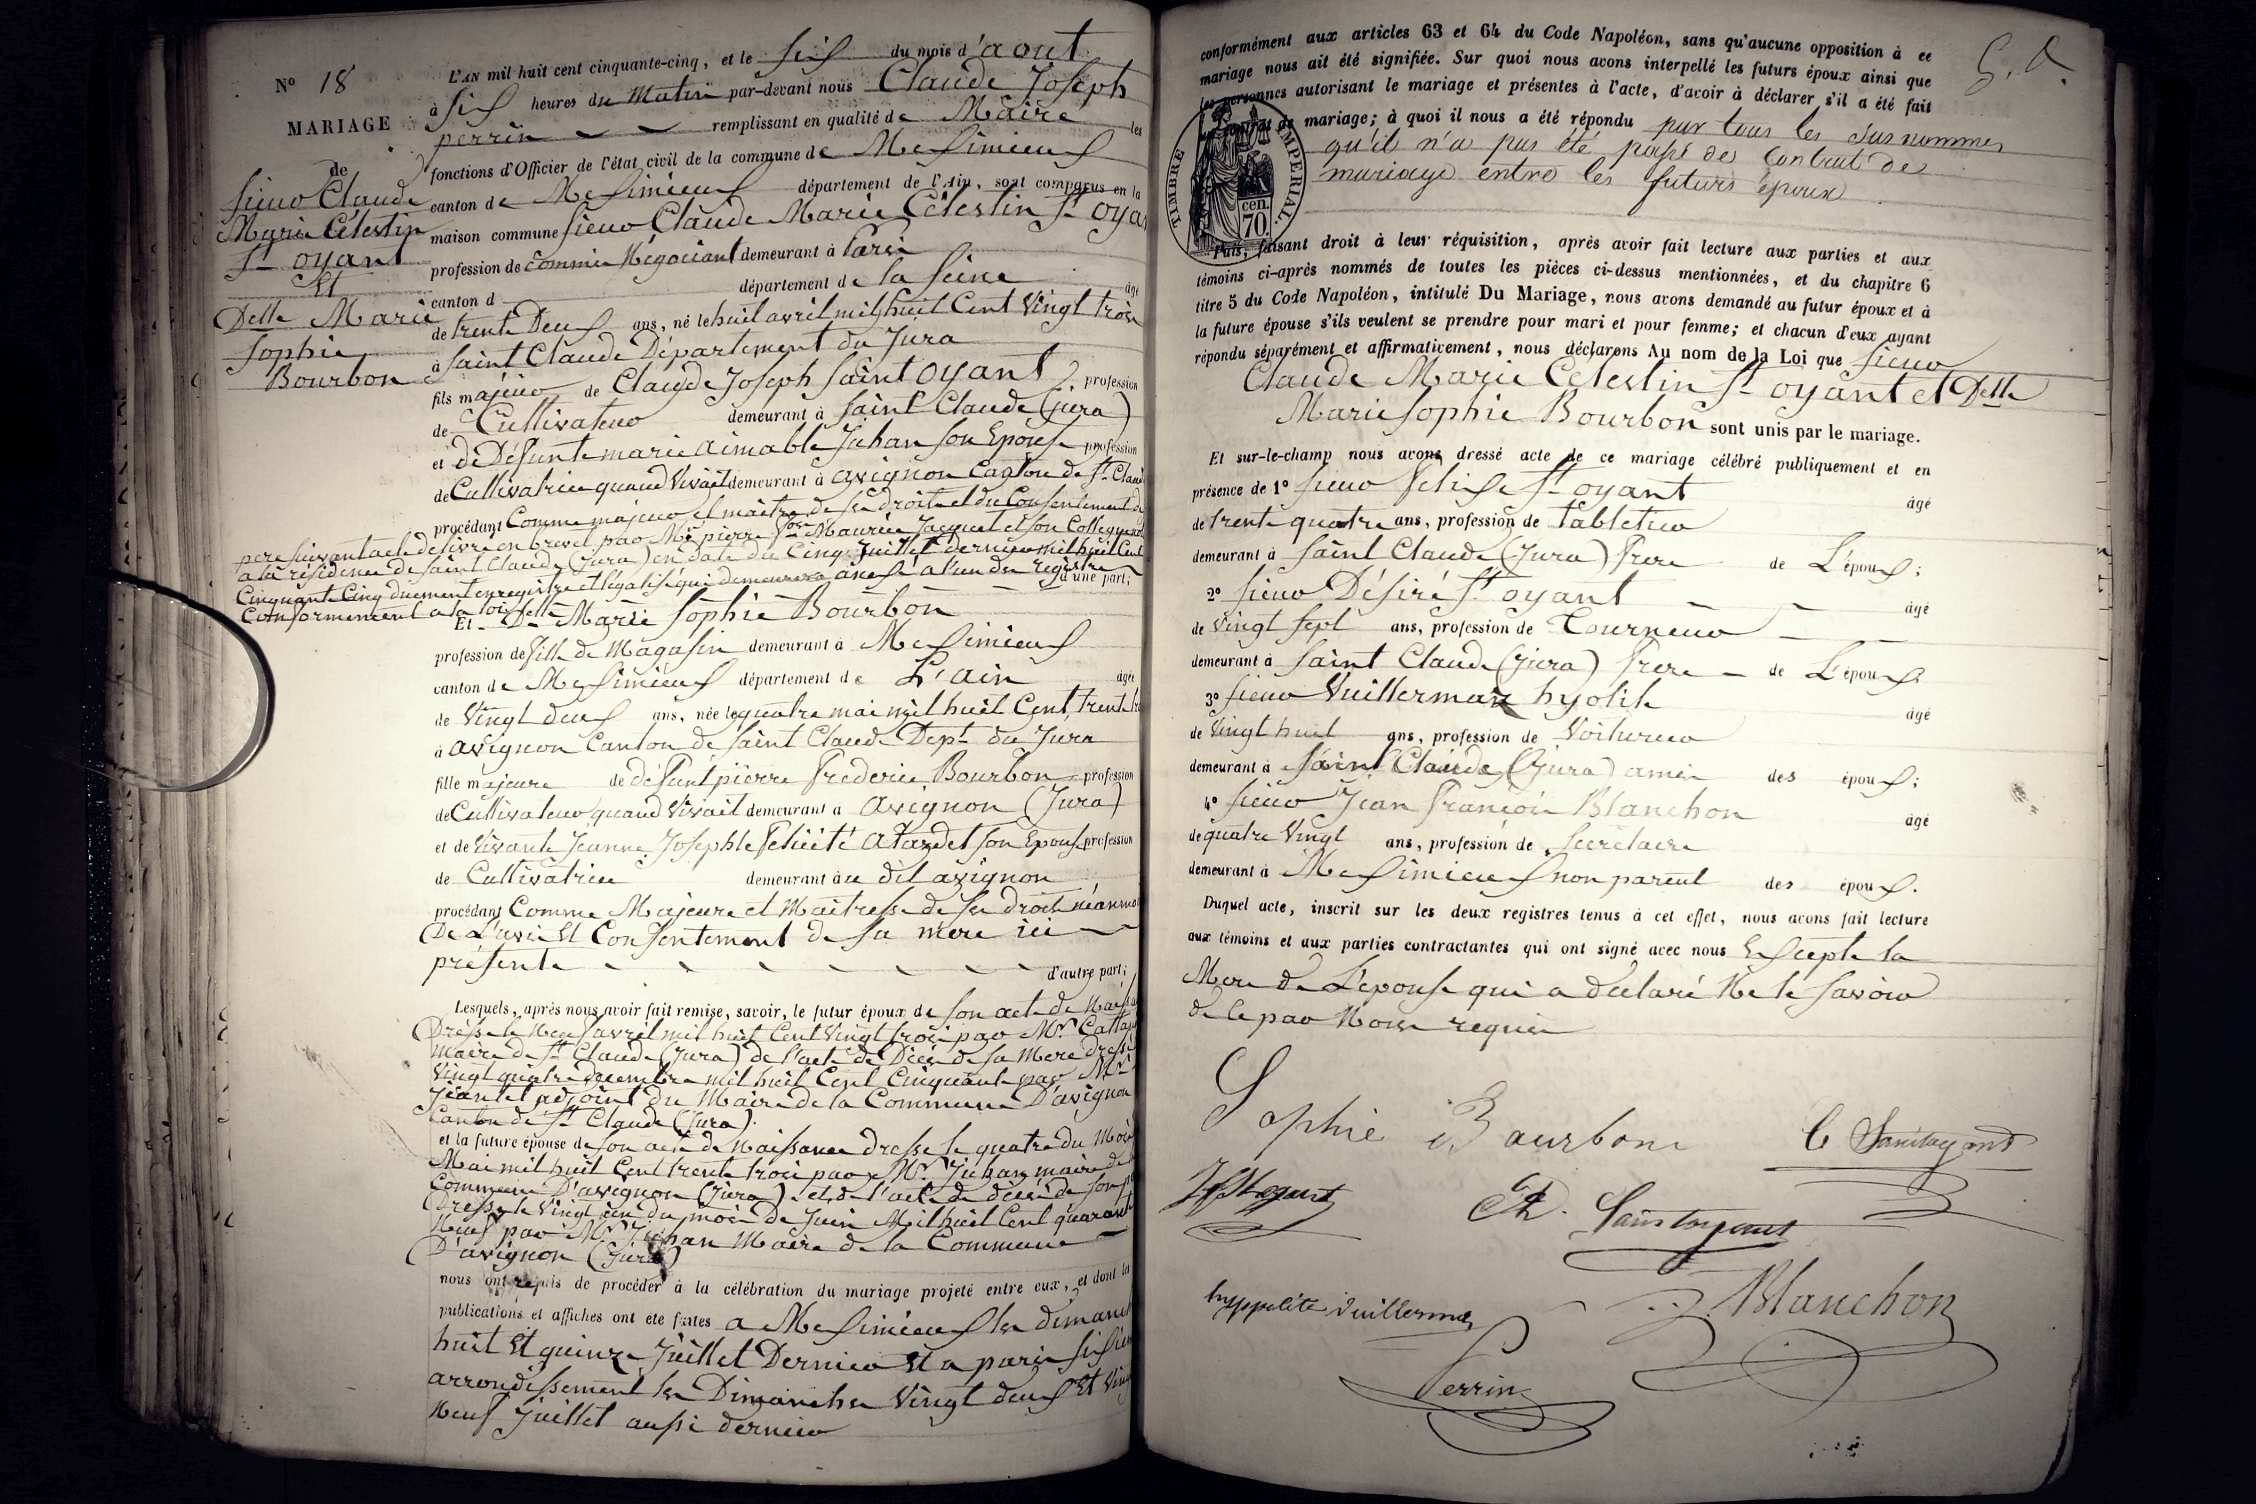 N° 18
MARIAGE
de
sieur Claude
Marie Célestin
St oyant
Et
Delle Marie
Sophie
Bourbon
L'AN mil huit cent cinquante-cinq, et le six du mois d'aout
à six heures du Matin par-devant nous Claude Joseph
perrin remplissant en qualité de Maire les
fonctions d'Officier de l'état civil de la commune de Meximieux
canton de Meximieux département de l'Ain, sont comparus en la
maison commune sieur Claude Marie Célestin St oyant
profession de commis Négociant demeurant à Paris
canton d département de la Seine âgé
de trente Deux ans, né le huit avril mil huit Cent Vingt trois
à Saint Claude Département du Jura
fils majeur de Claude Joseph Saint Oyant profession
de Cultivateur demeurant à Saint Claude (jura)
et de Défunte marie aimable Juhan son Epouse profession
de Cultivatrice quand Vivait demeurant à avignon Canton de St Claude
procédant Comme majeur et maître de ses droits et du Consentement de
pere suivant acte délivré en brevet par Me pierre Maurice Jacquet et son Collegue
a la résidence de Saint Claude (Jura) en date du Cinq Juillet dernier mil huit Cent
Cinquante Cinq duement enregistré et légalisé qui demeurera anexé a l'un des registres d'une part;
Conformement a la loi
Et Dlle Marie Sophie Bourbon
profession de fille de Magasin demeurant à Meximieux
canton de Meximieux département de L'ain âgée
de Vingt deux ans, née le quatre mai mil huit Cent trente
à avignon Canton de Saint Claude Dept du Jura
fille majeure de défunt pierre Frederic Bourbon profession
de Cultivateur quand Vivait demeurant a avignon (Jura)
et de Vivante Jeanne Josephte Félicité son Epouse profession
de Cultivatrice demeurant au dit avignon
procédant Comme Majeure et Maitresse de ses droits néanmoi
De L'avis Et Consentement de sa mère ici
présente d'autre part;
Lesquels, après nous avoir fait remise, savoir, le futur époux de son acte de Naiss
Dressé le Neuf avril mil huit Cent Vingt trois par Mr
maire de St Claude (jura) de l'acte de Décès de sa Mere dressé
Vingt quatre decembre mil huit Cent Cinquante par Mr
Jeantet adjoint du Maire de la Commune D'avignon
Canton de St Claude (Jura).
et la future épouse de son acte de Naissance dressé le quatre du Mois
Mai mil huit Cent trente trois par Mr Juhan maire de
Commune D'avignon (jura), et de l'acte de décès de son
Dressé le Vingt un du mois de Juin Mil huit Cent quarante
Neuf par Mr Juhan Maire de la Commune
D'avignon (jura)
nous ont requis de procéder à la célébration du mariage projeté entre eux, et dont les
publications et affiches ont été faites a Meximieux les dimanc
huit Et quinze Juillet Dernier Et a paris
arrondissement les Dimanches Vingt deux Et Vingt
Neuf Juillet aussi dernier
conformément aux articles 63 et 64 du Code Napoléon, sans qu'aucune opposition à ce
mariage nous ait été signifiée. Sur quoi nous avons interpellé les futurs époux ainsi que
les personnes autorisant le mariage et présentes à l'acte, d'avoir à déclarer s'il a été fait
un contrat de mariage; à quoi il nous a été répondu par tous les susnommés
qu'il n'a pas été passé de Contrat de
mariage entre les futurs époux.
TIMBRE IMPERIAL.
cen.
70.
Puis, faisant droit à leur réquisition, après avoir fait lecture aux parties et aux
témoins ci-après nommés de toutes les pièces ci-dessus mentionnées, et du chapitre 6
titre 5 du Code Napoléon, intitulé Du Mariage, nous avons demandé au futur époux et à
la future épouse s'ils veulent se prendre pour mari et pour femme; et chacun d'eux ayant
répondu séparément et affirmativement, nous déclarons Au nom de la Loi que sieur
Claude Marie Célestin St oyant et Delle
Marie Sophie Bourbon sont unis par le mariage.
Et sur-le-champ nous avons dressé acte de ce mariage célébré publiquement et en
présence de 1° sieur Felix St oyant âgé
de trente quatre ans, profession de tabletier
demeurant à Saint Claude (Jura) Frere de L'époux;
2° sieur Désiré St oyant âgé
de Vingt Sept ans, profession de Tourneur
demeurant à Saint Claude (jura) Frere de L'époux
3° sieur Vuillermoz hyolite âgé
de Vingt huit ans, profession de Voiturier
demeurant à Saint Claude (Jura) amis des époux;
4° sieur Jean François Blanchon âgé
de quatre Vingt ans, profession de Secrétaire
demeurant à Meximieux non parent des époux.
Duquel acte, inscrit sur les deux registres tenus à cet effet, nous avons fait lecture
aux témoins et aux parties contractantes qui ont signé avec nous Excepté la
Mere de L'épouse qui a déclaré Ne le savoir
de le par Nous requis
Sophie Bourbon C Saintoyant
D. Saintoyant
hyppolite Vuillermoz J. Blanchon
Perrin